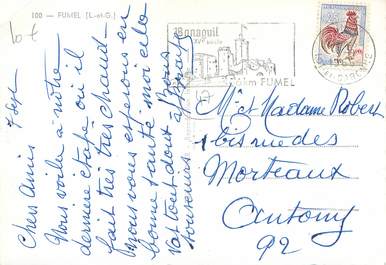 10 €
100 - FUMEL (L.-et-G.)
Bonaguil
XVe siècle
FUMEL
7 Sept
Chers Amis
Nous voilà à notre
dernière étape où il
fait très très chaud
nous vous espérons en
bonne santé moi cela
va tout doux Bons
Souvenirs
Mr et Madame Robert
1 bis rue des
Morteaux
Antony
92